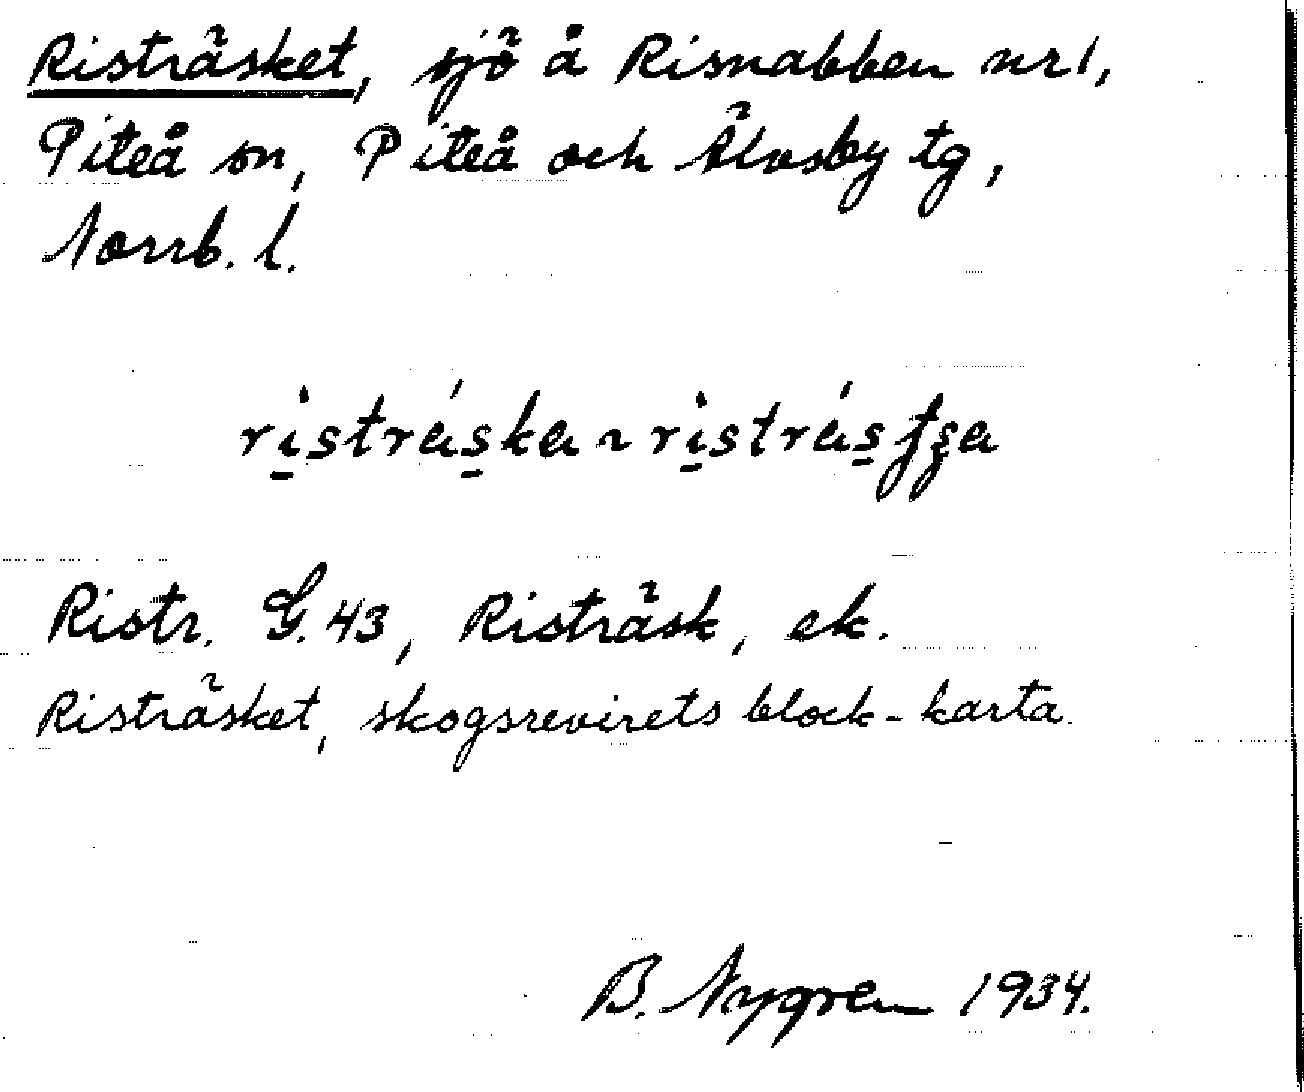 Risträsket, sjö å Risnabben nr 1,
Piteå sn, Piteå och Älvsby tg,
Norrb. l.
ristráska ~ ristrásʃʂa
Ristr. G. 43, Risträsk, ek.
Risträsket, skogsrevirets block-karta.
B. Nygren 1934.